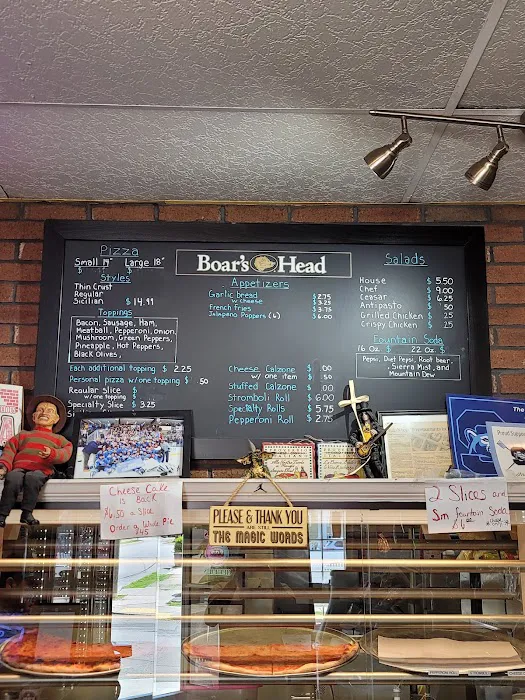 Pizza
Small 14" Large 18"
$ $ $
Styles
Thin Crust
Regular
Sicilian $14.99
Toppings
Bacon, Sausage, Ham,
Meatball, Pepperoni, onion,
Mushroom, Green Peppers,
Pineapple, Hot Peppers,
Black Olives,
Each additional topping $ 2.25
Personal pizza w/one topping $ 50
Regular Slice $
w/one topping $
Specialty Slice $ 3.25
Boar's Head
Appetizers
Garlic bread $2.75
w/cheese $3.25
French fries $3.75
Jalapano Poppers (6) $6.00
Cheese Calzone $ 00
w/ one item $ 50
Stuffed Calzone $ 00
Stromboli Roll $ 6.00
Specialty Rolls $ 5.75
Pepperoni Roll $ 2.75
Salads
House $ 5.50
Chef $ 9.00
Ceasar $ 6.25
Antipasto $ 50
Grilled Chicken $ 25
Crispy Chicken $ 25
Fountain Soda
16 Oz. $ 22 Oz. $
Pepsi, Diet Pepsi, Root beer,
, Sierra Mist, and
Mountain Dew
Cheese Cake
is Back
50 a Slice
Order a Whole Pie
$45
PLEASE & THANK YOU
ARE STILL
THE MAGIC WORDS
2 Slices and
Sm fountain Soda
The